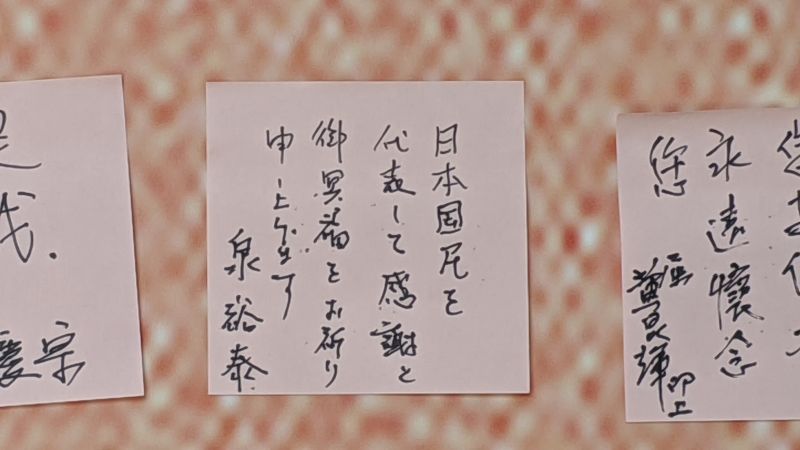 永遠懷念
您
黃昆輝
日本国民を
代表して感謝と
御冥福をお祈り
申し上げます
泉裕泰
慶宗